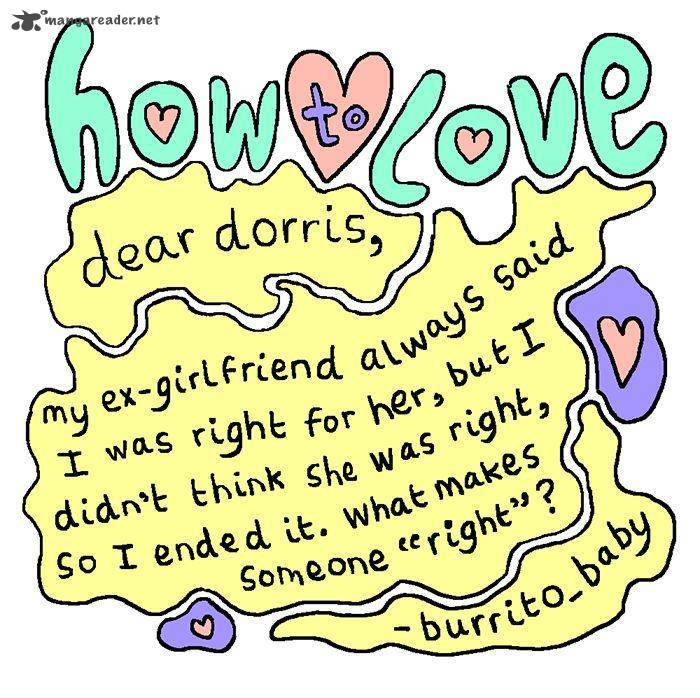 mangareader.net
how to love
dear dorris,
my ex-girlfriend always said
I was right for her, but I
didn't think she was right,
so I ended it. What makes
someone "right"?
-burrito_baby